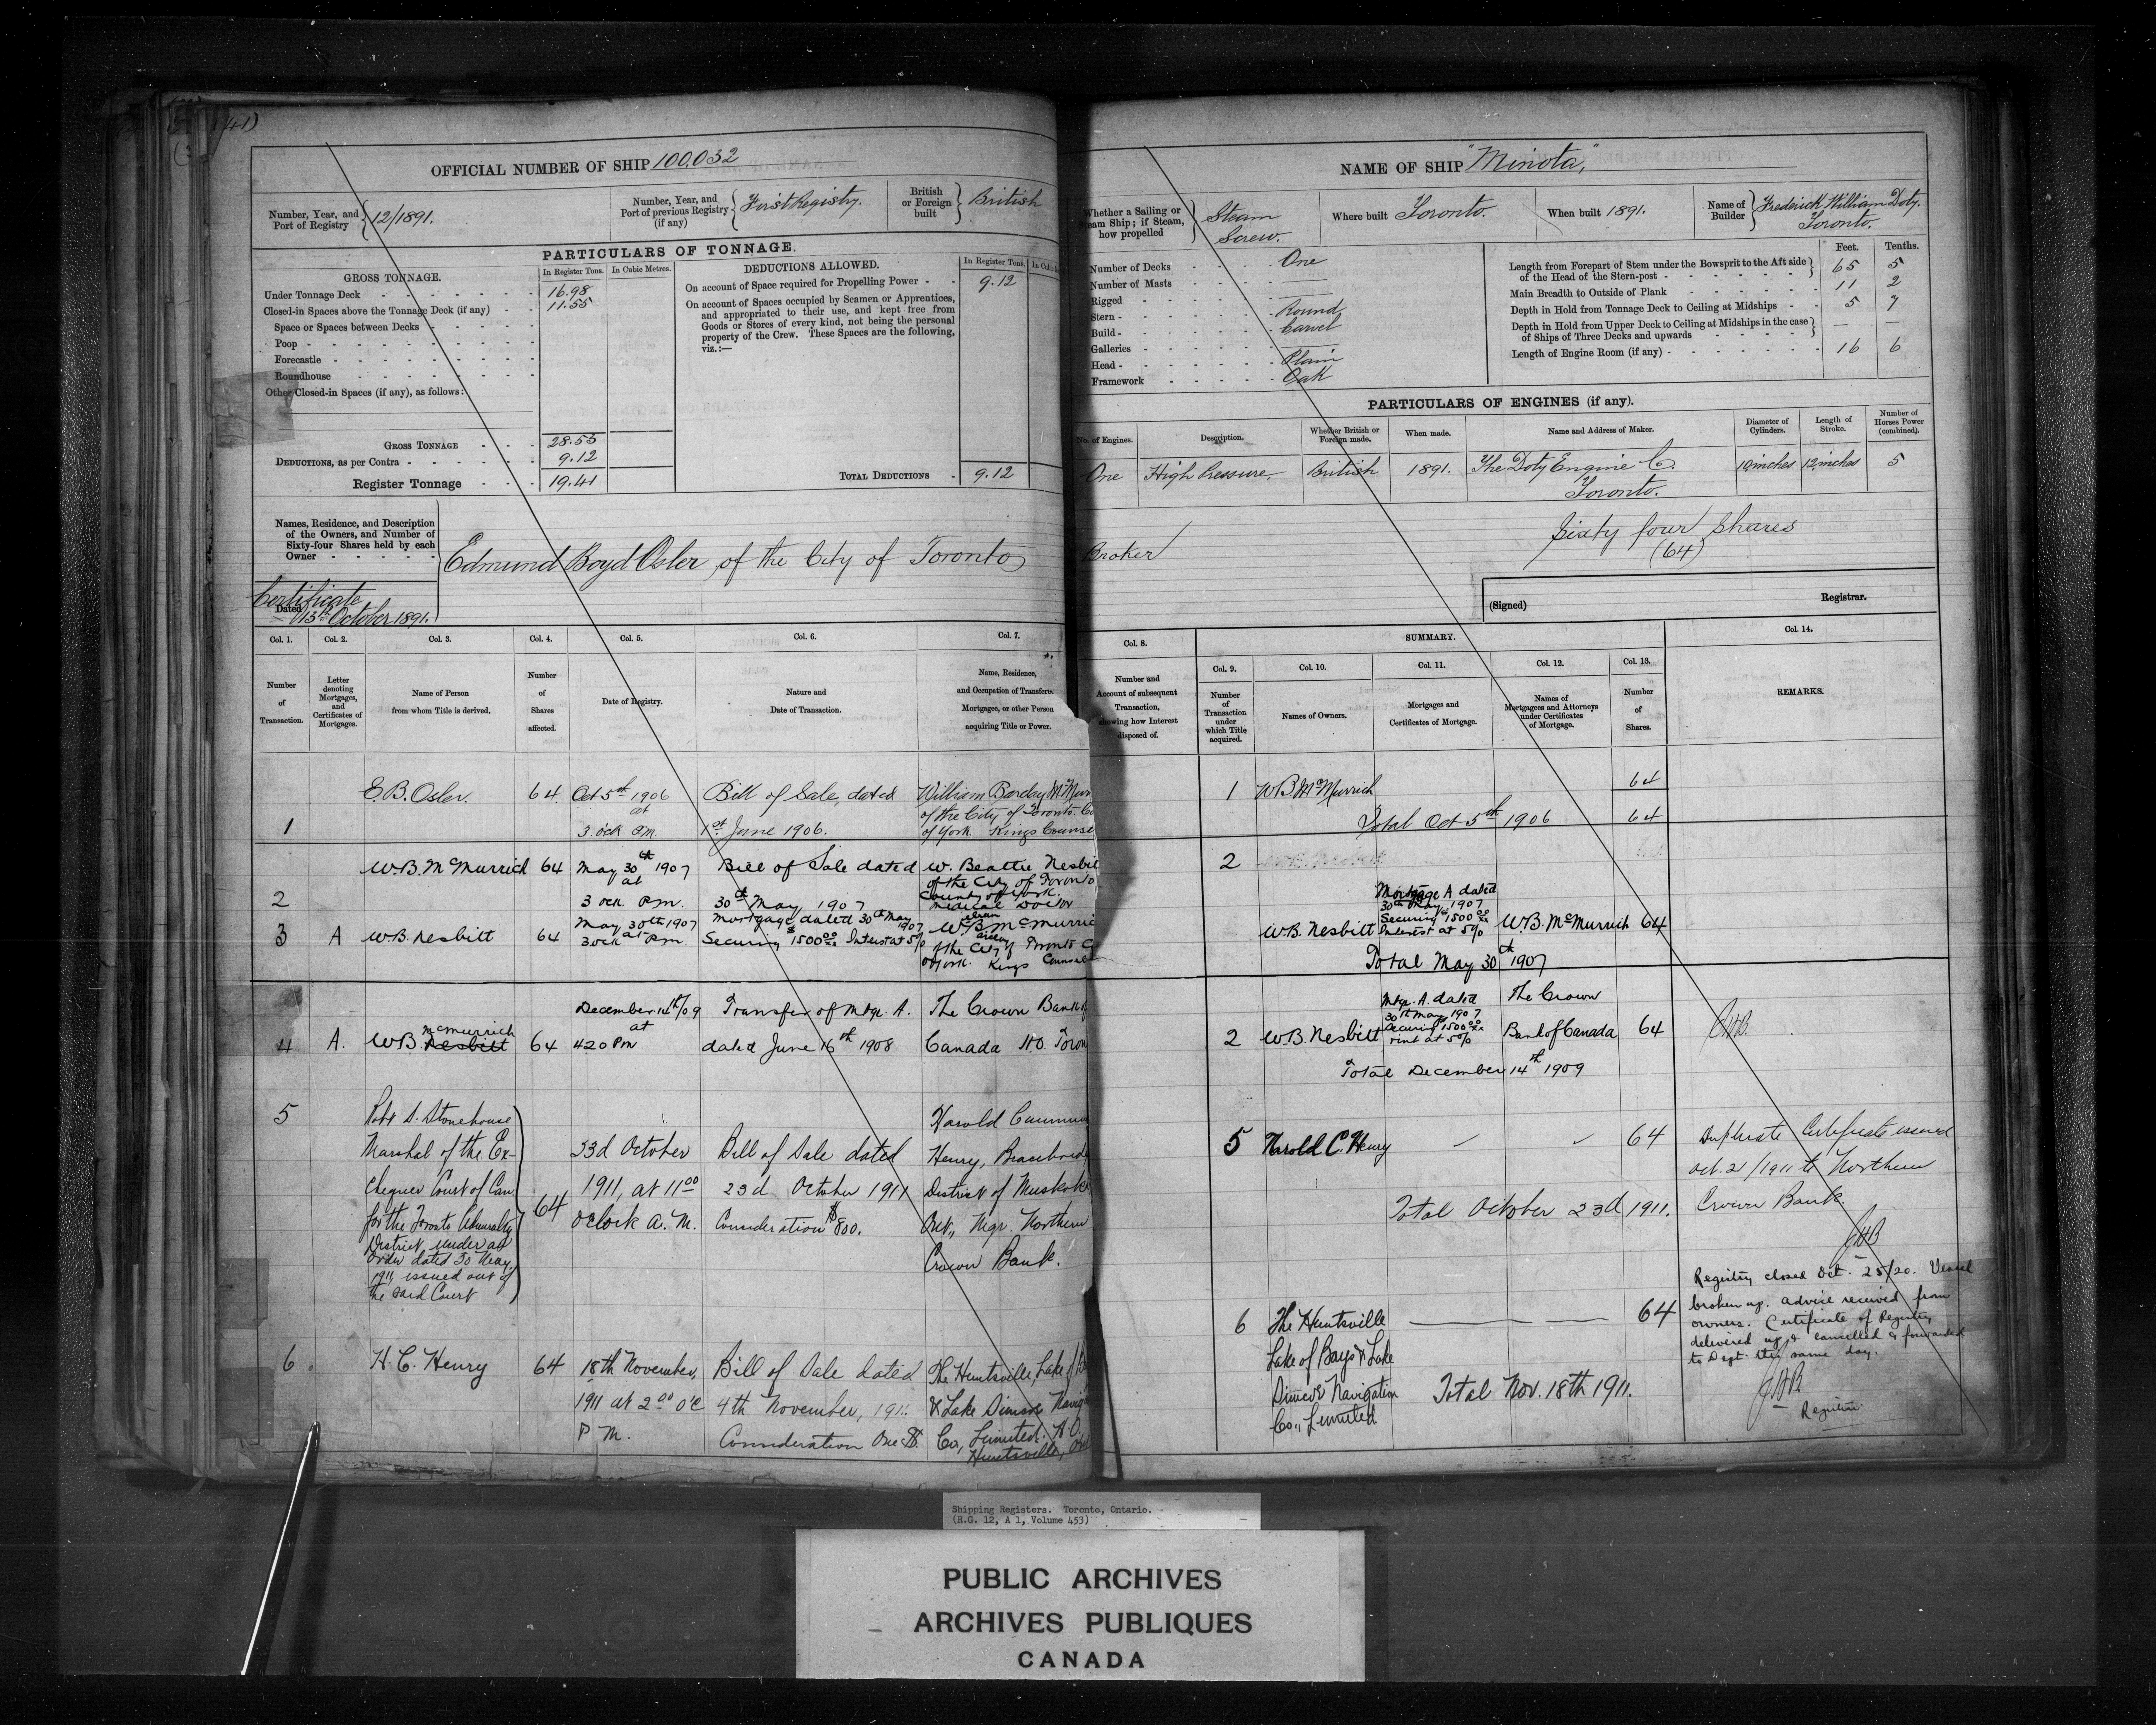 (41)
OFFICIAL NUMBER OF SHIP 100,032
Number, Year, and Port of Registry } 12/1891.
Number, Year, and Port of previous Registry (if any) { First Registry.
British or Foreign built } British
PARTICULARS OF TONNAGE.
GROSS TONNAGE.
In Register Tons. In Cubic Metres.
Under Tonnage Deck 16.98
Closed-in Spaces above the Tonnage Deck (if any) 11.55
Space or Spaces between Decks
Poop
Forecastle
Roundhouse
Other Closed-in Spaces (if any), as follows:
GROSS TONNAGE 28.53
DEDUCTIONS, as per Contra 9.12
Register Tonnage 19.41
DEDUCTIONS ALLOWED.
In Register Tons.
On account of Space required for Propelling Power 9.12
On account of Spaces occupied by Seamen or Apprentices,
and appropriated to their use, and kept free from
Goods or Stores of every kind, not being the personal
property of the Crew. These Spaces are the following,
viz.:—
TOTAL DEDUCTIONS 9.12
Names, Residence, and Description
of the Owners, and Number of
Sixty-four Shares held by each
Owner
Edmund Boyd Osler, of the City of Toronto
Certificate
Dated 13th October 1891.
Col. 1. Col. 2. Col. 3. Col. 4. Col. 5. Col. 6. Col. 7.
Number of Transaction.
Letter denoting Mortgages, and Certificates of Mortgages.
Name of Person from whom Title is derived.
Number of Shares affected.
Date of Registry.
Nature and Date of Transaction.
Name, Residence,
and Occupation of Transferee,
Mortgagee, or other Person
acquiring Title or Power.
1
E. B. Osler. 64
Oct 5th 1906
at
3. ock P.M.
Bill of Sale, dated
1st June 1906.
William Barclay McMurr
of the City of Toronto. Co
of York Kings Counse
2
W.B. McMurrich 64
May 30th 1907
at
3 ock P.M.
Bill of Sale dated
30th May 1907
W. Beattie Nesbit
of the City of Toronto
County of York.
medical Doctor
3 A W.B. Nesbitt 64
May 30th 1907
at
3 ock P.M.
Mortgage dated 30th May 1907
Securing $1500 00/xx Interest at 5%
W.B. McMurric
of the City of Toronto C
of York. Kings Counsel
4 A. W.B. McMurrich Nesbitt 64
December 14th/09
at
4 20 PM
Transfer of Mtge. A.
dated June 16th 1908
The Crown Bank of
Canada H.O. Toron
5
Robt S. Stonehouse
Marshal of the Ex-
chequer Court of Can.
for the Toronto Admiralty
District under an
Order dated 30 May
1911 issued out of
the said Court
64
23d October
1911, at 11 00
o'clock A. M.
Bill of Sale dated
23d October 1911
Consideration $800.
Harold
Henry, Bracebrid
District of Muskoka
Ont., Mgr. Northern
Crown Bank.
6. H. C. Henry 64
18th November,
1911 at 2 00 o'c
P M.
Bill of Sale dated
4th November, 1911.
Consideration One $.
The Huntsville, Lake of B
& Lake Simcoe Navig
Co., Limited. H.O.
Huntsville, Ont
NAME OF SHIP "Minota,"
Whether a Sailing or Steam Ship; if Steam, how propelled } Steam Screw.
Where built Toronto.
When built 1891.
Name of Builder } Frederick William Doty. Toronto.
Number of Decks One
Number of Masts
Rigged
Stern Round
Build Carvel
Galleries
Head Plain
Framework Oak
Feet. Tenths.
Length from Forepart of Stem under the Bowsprit to the Aft side
of the Head of the Stern-post } 65 5
Main Breadth to Outside of Plank 11 2
Depth in Hold from Tonnage Deck to Ceiling at Midships 5 7
Depth in Hold from Upper Deck to Ceiling at Midships in the case
of Ships of Three Decks and upwards } — —
Length of Engine Room (if any) 16 6
PARTICULARS OF ENGINES (if any).
No. of Engines. Description. Whether British or Foreign made. When made. Name and Address of Maker. Diameter of Cylinders. Length of Stroke. Number of Horses Power (combined).
One High Pressure. British 1891. The Doty Engine Co. Toronto. 10 inches 12 inches 5
Broker
Sixty four Shares
(64)
(Signed) Registrar.
Col. 8. SUMMARY. Col. 14.
Col. 9. Col. 10. Col. 11. Col. 12. Col. 13.
Number and
Account of subsequent
Transaction,
showing how Interest
disposed of.
Number of Transaction under which Title acquired.
Names of Owners.
Mortgages and Certificates of Mortgage.
Names of Mortgagees and Attorneys under Certificates of Mortgage.
Number of Shares.
REMARKS.
1 W.B. McMurrich 64
Total Oct 5th 1906 64
2
W.B. Nesbitt
Mortgage A dated
30th May 1907
Securing $1500 00/xx
Interest at 5%
W.B. McMurrich 64
Total May 30th 1907
2 W.B. Nesbitt
Mtge. A. dated
30th May 1907
Securing $1500 00/xx
rint at 5%
The Crown
Bank of Canada 64
Total December 14th 1909
5 Harold C. Henry 64
Total October 23d 1911.
Duplicate Certificate issued
Oct. 21/1911 to Northern
Crown Bank.
6 The Huntsville
Lake of Bays & Lake
Simcoe Navigation
Co., Limited
64
Total Nov. 18th 1911.
Registry closed Oct. 25/20. Vessel
broken up. advice received from
owners. Certificate of Registry
delivered up & cancelled & forwarded
to Dept. this same day.
Registrar
Shipping Registers. Toronto, Ontario.
(R.G. 12, A 1, Volume 453)
PUBLIC ARCHIVES
ARCHIVES PUBLIQUES
CANADA